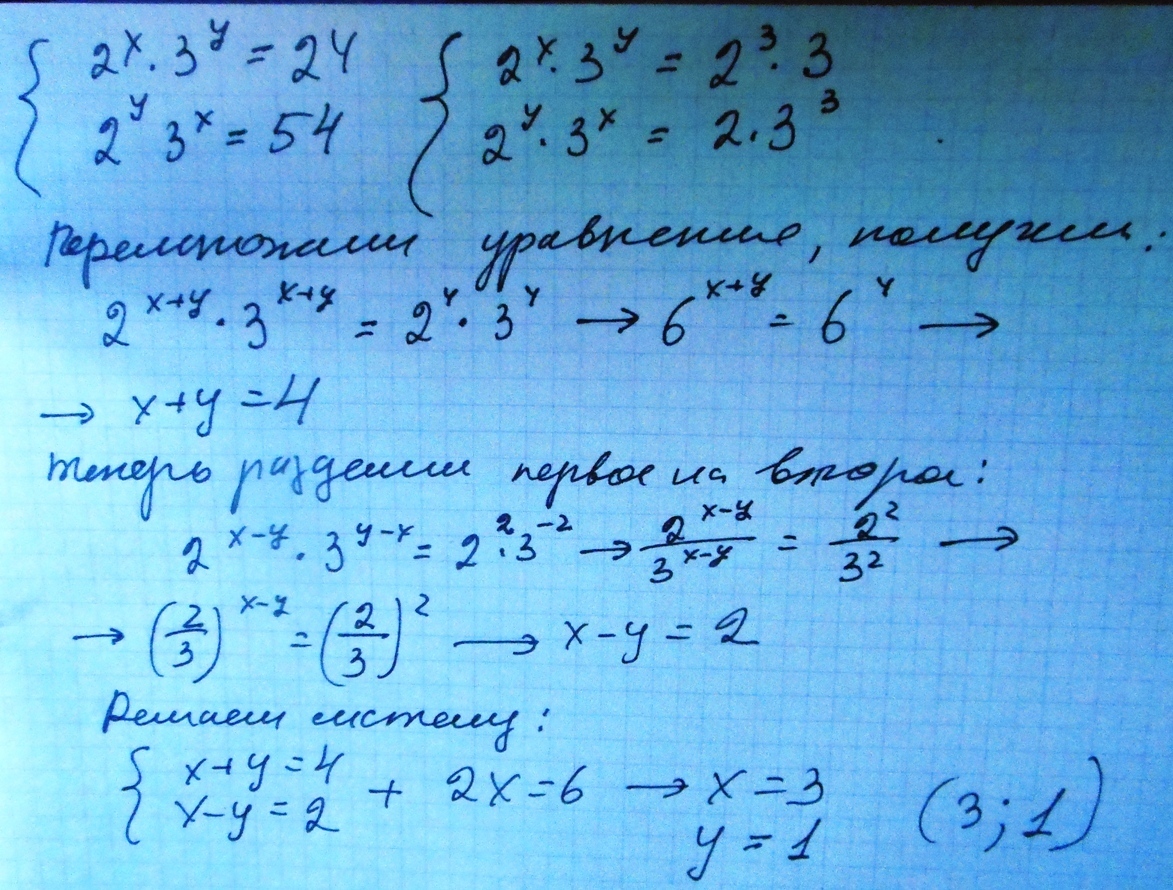 { 2^x · 3^y = 24 { 2^x · 3^y = 2^3 · 3
2^y 3^x = 54 2^y · 3^x = 2 · 3^3
Перемножаем уравнения, получим:
2^(x+y) · 3^(x+y) = 2^4 · 3^4 → 6^(x+y) = 6^4 →
→ x+y=4
Теперь разделим первое на второе:
2^(x-y) · 3^(y-x) = 2^2 · 3^(-2) → 2^(x-y)/3^(x-y) = 2^2/3^2 →
→ (2/3)^(x-y) = (2/3)^2 → x-y = 2
Решаем систему:
{ x+y=4 + 2x=6 → x=3 (3; 1)
x-y=2 y=1